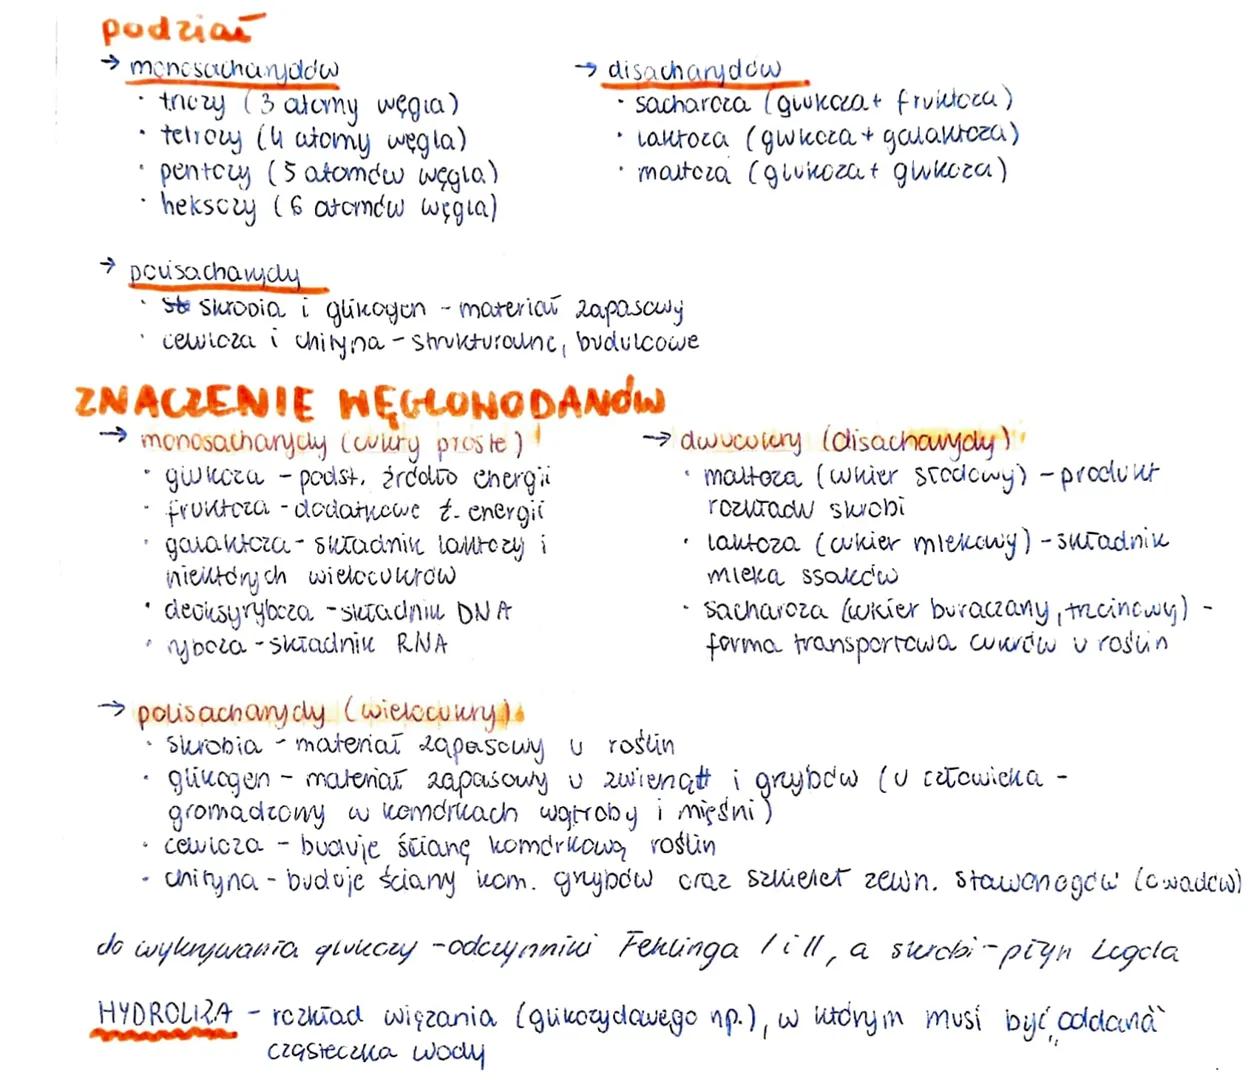 podział
→ monosacharydów
· triozy (3 atomy węgla)
· tetrozy (4 atomy węgla)
· pentozy (5 atomów węgla)
· heksozy (6 atomów węgla)
→ disacharydów
· sacharoza (glukoza + fruktoza)
· laktoza (glukoza + galaktoza)
· maltoza (glukoza + glukoza)
→ polisacharydy
· skrobia i glikogen - materiał zapasowy
· celuloza i chityna - strukturalne, budulcowe
ZNACZENIE WĘGLOWODANÓW
→ monosacharydy (cukry proste)
· glukoza - podst. źródło energii
· fruktoza - dodatkowe ź. energii
· galaktoza - składnik laktozy i
niektórych wielocukrów
· deoksyryboza - składnik DNA
· ryboza - składnik RNA
→ dwucukry (disacharydy)
· maltoza (cukier słodowy) - produkt
rozkładu skrobi
· laktoza (cukier mlekowy) - składnik
mleka ssaków
· sacharoza (cukier buraczany, trzcinowy) -
forma transportowa cukrów u roślin
→ polisacharydy (wielocukry)
· skrobia - materiał zapasowy u roślin
· glikogen - materiał zapasowy u zwierząt i grzybów (u człowieka -
gromadzony w komórkach wątroby i mięśni)
· celuloza - buduje ścianę komórkową roślin
· chityna - buduje ściany kom. grzybów oraz szkielet zewn. stawonogów (owadów)
do wykrywania glukozy - odczynniki Fehlinga I i II, a skrobi - płyn Lugola
HYDROLIZA - rozkład wiązania (glikozydowego np.), w którym musi być „oddana”
cząsteczka wody